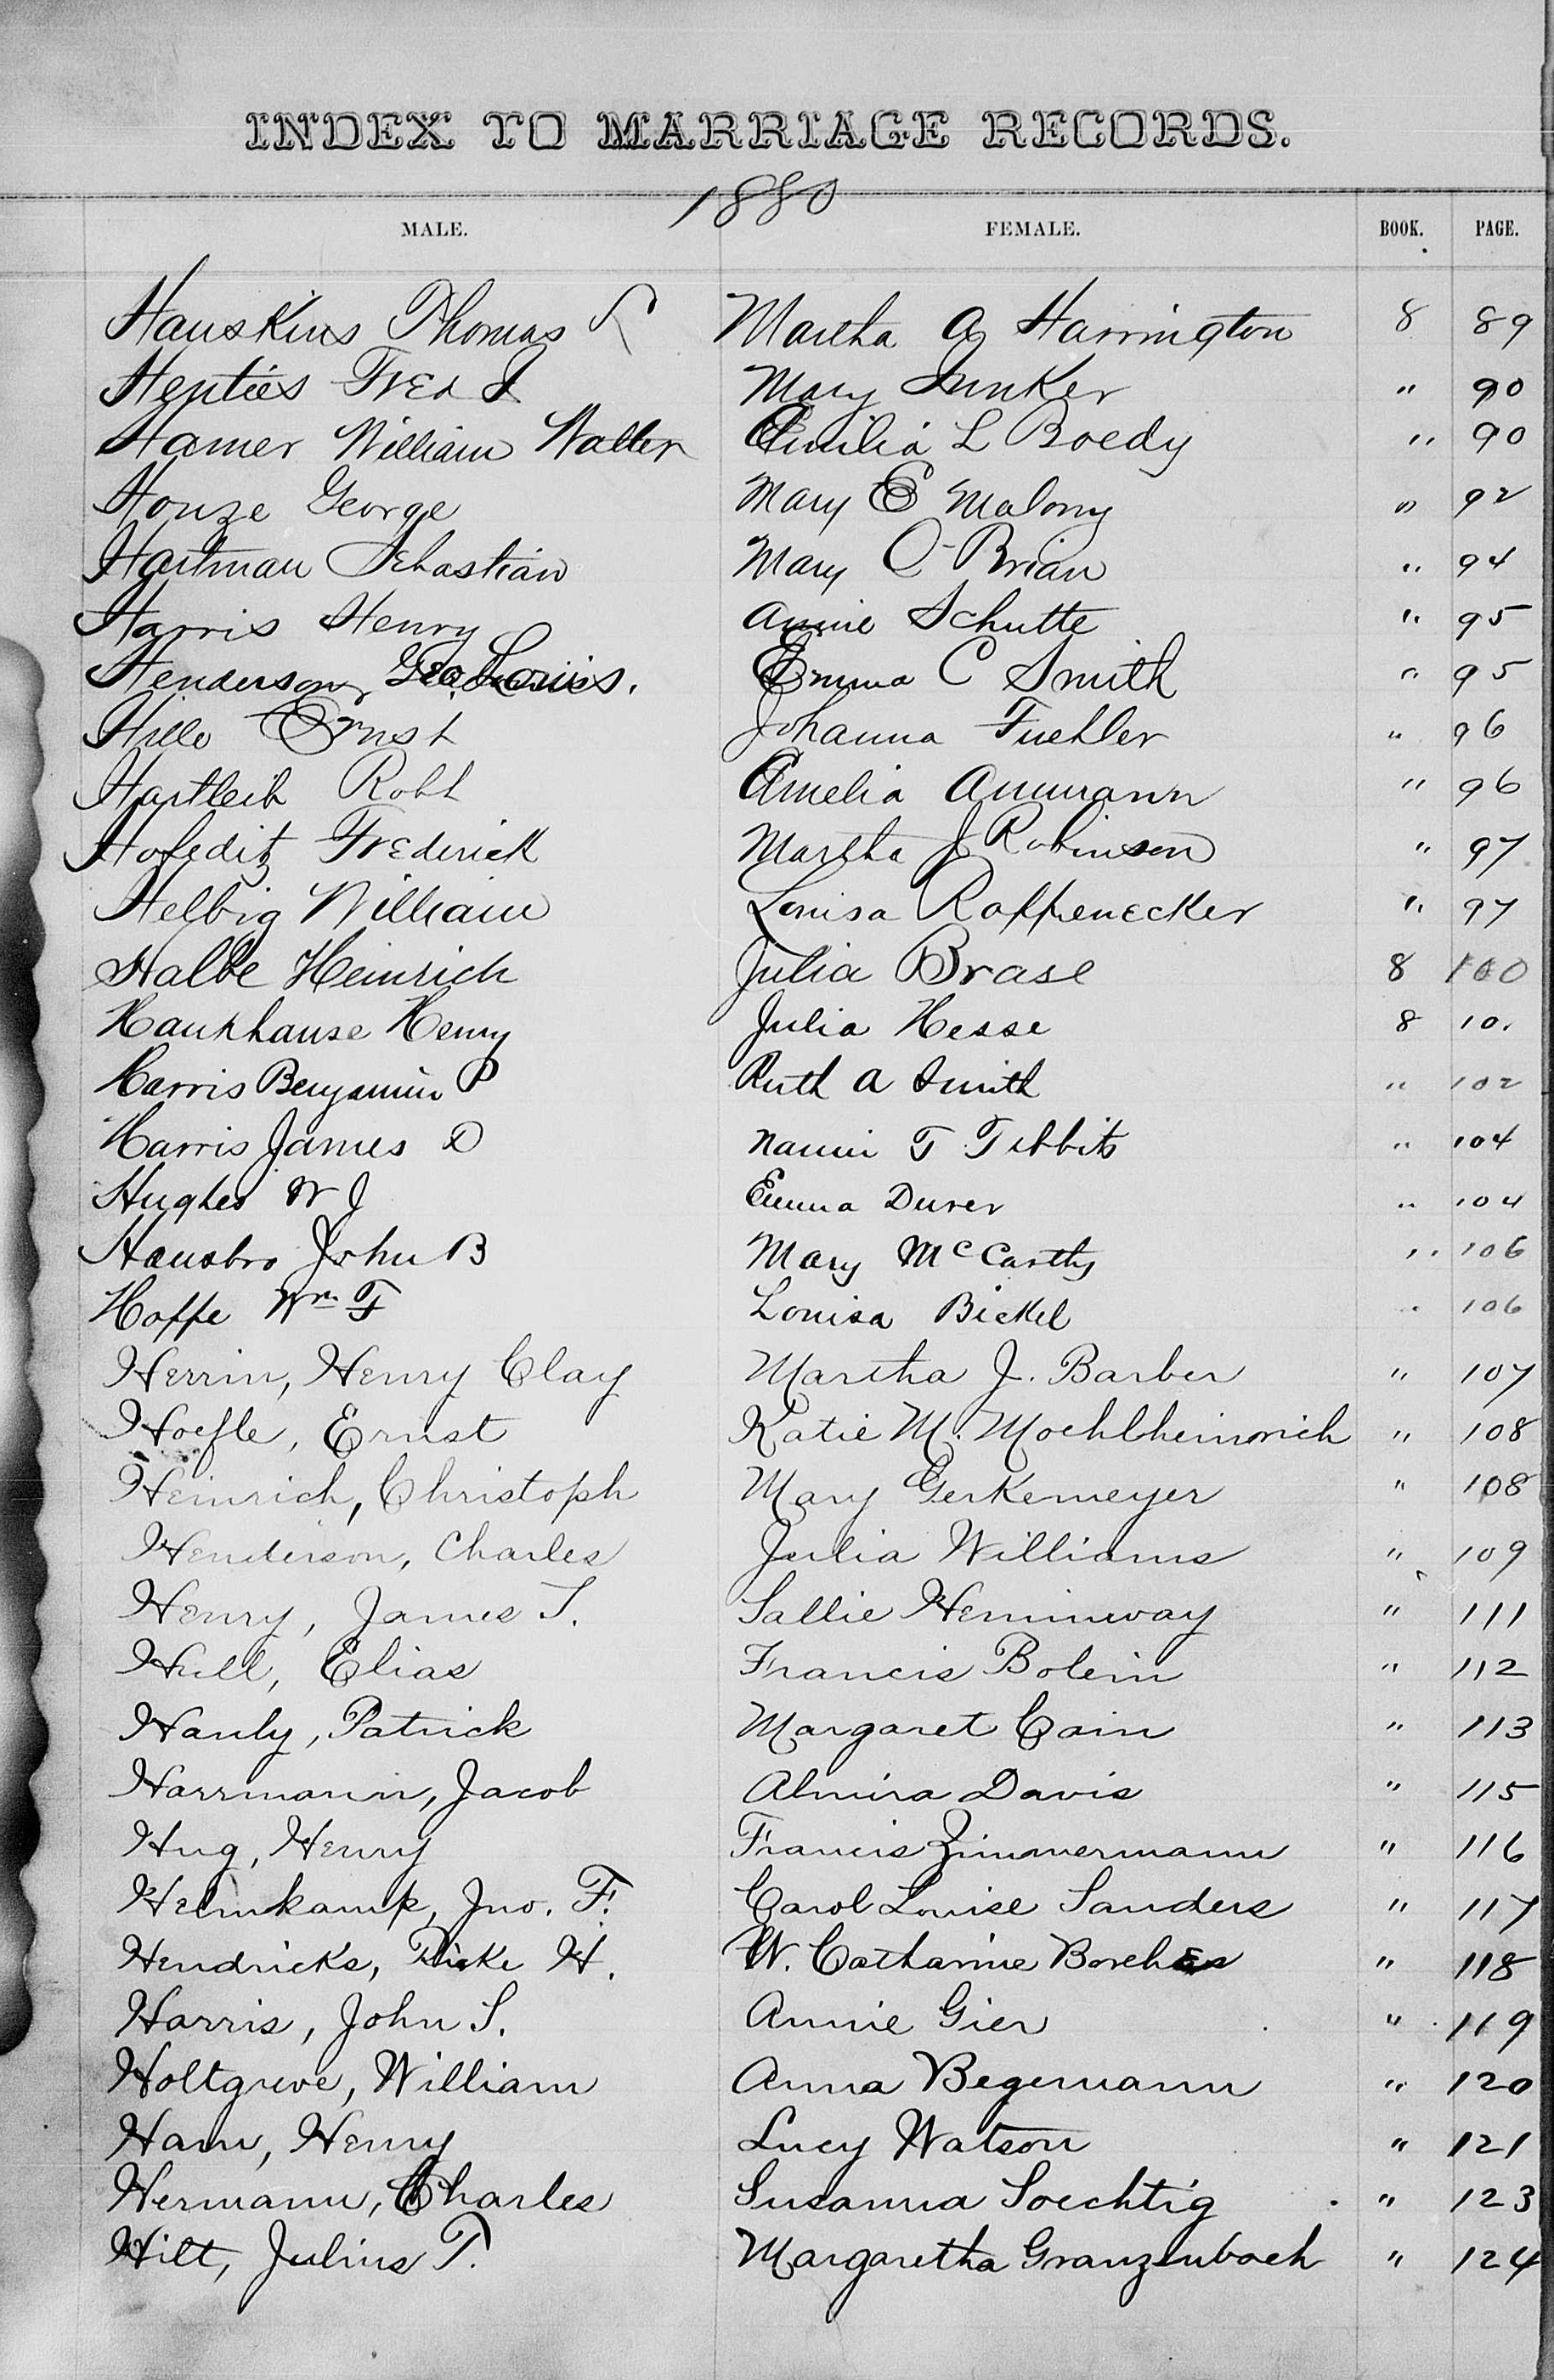 INDEX TO MARRIAGE RECORDS.
1880
MALE. FEMALE. BOOK. PAGE.
Hauskins Thomas Martha A Harrington 8 89
Henties Fred Mary Junker " 90
Hamer William Walter Emilia L Boedy " 90
Houze George Mary E Malony " 92
Hartman Sebastian Mary O'Brian " 94
Harris Henry Annie Schutte " 95
Henderson Geo. Louis. Emma C Smith " 95
Hille Ernst Johanna Fuehler " 96
Hartleib Robt Amelia Aumann " 96
Hofeditz Frederick Martha J Robinson " 97
Helbig William Louisa Roffenecker " 97
Halbe Heinrich Julia Brase 8 100
Haukhause Henry Julia Hesse 8 10.
Harris Benjamin P Ruth A Smith " 102
Harris James D Nannie T Tibbits " 104
Hughes W J Emma Durer " 104
Hausbro John B Mary McCarthy " 106
Hoppe Wm. F Louisa Bickel " 106
Herrin, Henry Clay Martha J. Barber " 107
Hoefle, Ernst Katie M. Moehlheinrich " 108
Heinrich, Christoph Mary Gerkemeyer " 108
Henderson, Charles Julia Williams " 109
Henry, James T. Sallie Heminway " 111
Hull, Elias Francis Bolein " 112
Hanly, Patrick Margaret Cain " 113
Harrmann, Jacob Almira Davis " 115
Hug, Henry Francis Zimmermann " 116
Helmkamp, Jno. F. Carol Louise Sanders " 117
Hendricks, H. W. Catharine Borches " 118
Harris, John S. Annie Gier " 119
Holtgreve, William Anna Begemann " 120
Ham, Henry Lucy Watson " 121
Hermann, Charles Susanna Soechtig " 123
Hilt, Julius T. Margaretha Granzenbach " 124